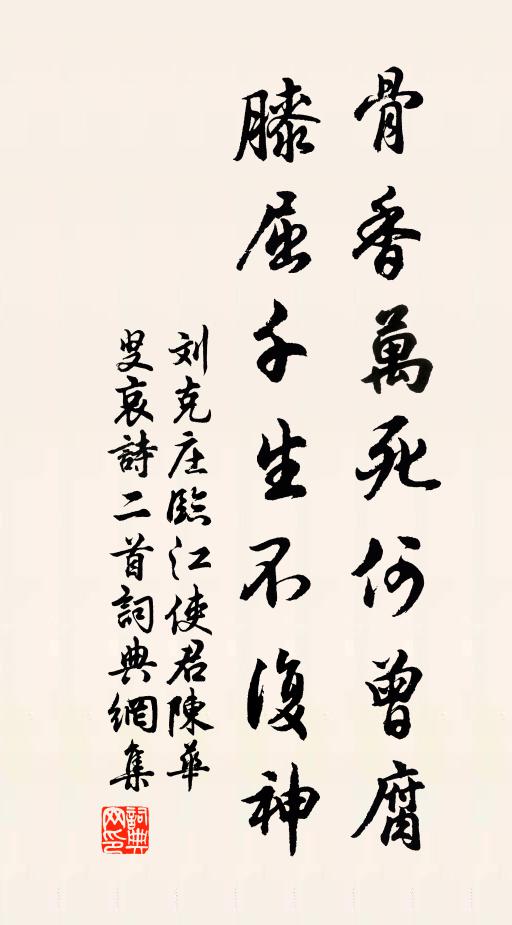 骨香萬死何曾腐
膝屈千生不復神
刘克庄臨江使君陳華
叟哀詩二首詞典網集
詞典
网印